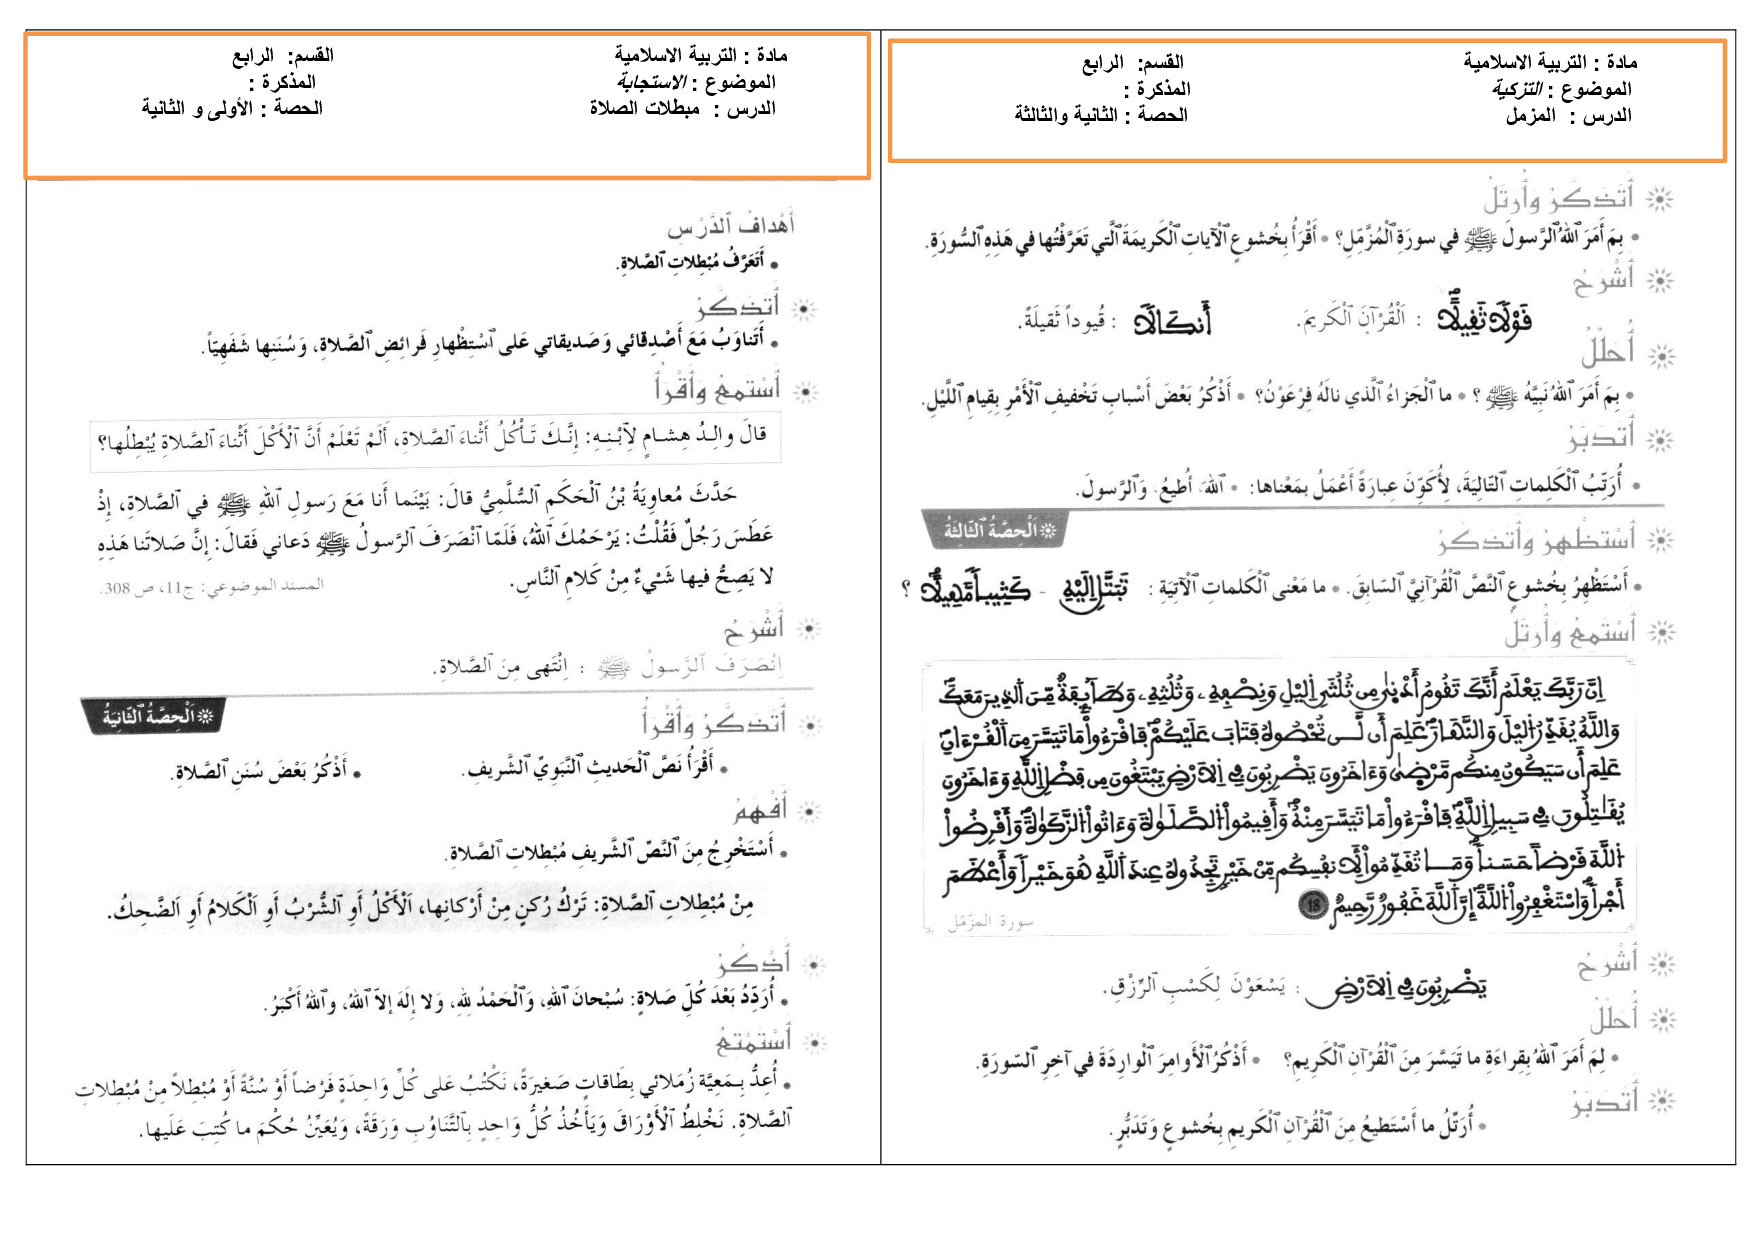 مادة : التربية الاسلامية
القسم: الرابع
الموضوع : التزكية
المذكرة :
الدرس : المزمل
الحصة : الثانية والثالثة
أَتَذَكَّرُ وَأُرَتِّلُ
• بِمَ أَمَرَ ٱللهُ ٱلرَّسولَ ﷺ في سورَةِ ٱلْمُزَّمِّلِ؟ • أَقْرَأُ بِخُشوعٍ ٱلْآياتِ ٱلْكَريمَةَ ٱلَّتي تَعَرَّفْتُها في هَذِهِ ٱلسُّورَةِ.
أَشْرَحُ
قَوْلًا ثَقِيلًا : اَلْقُرْآنَ ٱلْكَريمَ. أَنكَالًا : قُيوداً ثَقيلَةً.
أُحَلِّلُ
• بِمَ أَمَرَ ٱللهُ نَبِيَّهُ ﷺ ؟ • ما ٱلْجَزاءُ ٱلَّذي نالَهُ فِرْعَوْنُ؟ • أَذْكُرُ بَعْضَ أَسْبابِ تَخْفيفِ ٱلْأَمْرِ بِقِيامِ ٱللَّيْلِ.
أَتَدَبَّرُ
• أُرَتِّبُ ٱلْكَلِماتِ ٱلتّالِيَةَ، لِأُكَوِّنَ عِبارَةً أَعْمَلُ بِمَعْناها: • ٱللهَ، أُطيعُ، وَٱلرَّسولَ.
اَلْحِصَّةُ ٱلثّالِثَةُ
أَسْتَظْهِرُ وَأَتَذَكَّرُ
• أَسْتَظْهِرُ بِخُشوعٍ ٱلنَّصَّ ٱلْقُرْآنِيَّ ٱلسّابِقَ. • ما مَعْنى ٱلْكَلِماتِ ٱلْآتِيَةِ : تَبَتَّلِ اِلَيْهِ - كَثِيباً مَّهِيلًا ؟
أَسْتَمِعُ وَأُرَتِّلُ
إِنَّ رَبَّكَ يَعْلَمُ أَنَّكَ تَقُومُ أَدْنَىٰ مِن ثُلُثَيِ اِلَيْلِ وَنِصْفِهِۦ وَثُلُثِهِۦ وَطَآئِفَةٌ مِّنَ ٱلذِينَ مَعَكَ
وَاللَّهُ يُقَدِّرُ اُلَيْلَ وَالنَّهَارَ عَلِمَ أَن لَّن تُحْصُوهُ فَتَابَ عَلَيْكُمْ فَاقْرَءُواْ مَا تَيَسَّرَ مِنَ اَلْقُرْءَانِ
عَلِمَ أَن سَيَكُونُ مِنكُم مَّرْضَىٰ وَءَاخَرُونَ يَضْرِبُونَ فِي اِلَارْضِ يَبْتَغُونَ مِن فَضْلِ اِللَّهِ وَءَاخَرُونَ
يُقَٰتِلُونَ فِي سَبِيلِ اِللَّهِ فَاقْرَءُواْ مَا تَيَسَّرَ مِنْهُ وَأَقِيمُواْ اُلصَّلَوٰةَ وَءَاتُواْ اُلزَّكَوٰةَ وَأَقْرِضُواْ
اُللَّهَ قَرْضاً حَسَناً وَمَا تُقَدِّمُواْ لِأَنفُسِكُم مِّنْ خَيْرٍ تَجِدُوهُ عِندَ اَللَّهِ هُوَ خَيْراً وَأَعْظَمَ
أَجْراً وَاسْتَغْفِرُواْ اُللَّهَ إِنَّ اَللَّهَ غَفُورٌ رَّحِيمٌ 18
سورة المزمّل
أَشْرَحُ
يَضْرِبُونَ فِي اِلَارْضِ : يَسْعَوْنَ لِكَسْبِ ٱلرِّزْقِ.
أُحَلِّلُ
• لِمَ أَمَرَ ٱللهُ بِقِراءَةِ ما تَيَسَّرَ مِنَ ٱلْقُرْآنِ ٱلْكَريمِ؟ • أَذْكُرُ ٱلْأَوامِرَ ٱلْوارِدَةَ في آخِرِ ٱلسّورَةِ.
أَتَدَبَّرُ
• أُرَتِّلُ ما أَسْتَطيعُ مِنَ ٱلْقُرْآنِ ٱلْكَريمِ بِخُشوعٍ وَتَدَبُّرٍ.
مادة : التربية الاسلامية
القسم: الرابع
الموضوع : الاستجابة
المذكرة :
الدرس : مبطلات الصلاة
الحصة : الأولى و الثانية
أَهْدافُ ٱلدَّرْسِ
• أَتَعَرَّفُ مُبْطِلاتِ ٱلصَّلاةِ.
أَتَذَكَّرُ
• أَتَناوَبُ مَعَ أَصْدِقائي وَصَديقاتي عَلى ٱسْتِظْهارِ فَرائِضِ ٱلصَّلاةِ، وَسُنَنِها شَفَهِيّاً.
أَسْتَمِعُ وَأَقْرَأُ
قالَ والِدُ هِشامٍ لِٱبْنِهِ: إِنَّكَ تَأْكُلُ أَثْناءَ ٱلصَّلاةِ، أَلَمْ تَعْلَمْ أَنَّ ٱلْأَكْلَ أَثْناءَ ٱلصَّلاةِ يُبْطِلُها؟
حَدَّثَ مُعاوِيَةُ بْنُ ٱلْحَكَمِ ٱلسُّلَّمِيُّ قالَ: بَيْنَما أَنا مَعَ رَسولِ ٱللهِ ﷺ في ٱلصَّلاةِ، إِذْ
عَطَسَ رَجُلٌ فَقُلْتُ: يَرْحَمُكَ ٱللهُ، فَلَمّا ٱنْصَرَفَ ٱلرَّسولُ ﷺ دَعاني فَقالَ: إِنَّ صَلاتَنا هَذِهِ
لا يَصِحُّ فيها شَيْءٌ مِنْ كَلامِ ٱلنَّاسِ.
المسند الموضوعي: ج11، ص 308.
أَشْرَحُ
اِنْصَرَفَ ٱلرَّسولُ ﷺ : اِنْتَهى مِنَ ٱلصَّلاةِ.
اَلْحِصَّةُ ٱلثّانِيَةُ
أَتَذَكَّرُ وَأَقْرَأُ
• أَقْرَأُ نَصَّ ٱلْحَديثِ ٱلنَّبَوِيِّ ٱلشَّريفِ. • أَذْكُرُ بَعْضَ سُنَنِ ٱلصَّلاةِ.
أَفْهَمُ
• أَسْتَخْرِجُ مِنَ ٱلنَّصِّ ٱلشَّريفِ مُبْطِلاتِ ٱلصَّلاةِ.
مِنْ مُبْطِلاتِ ٱلصَّلاةِ: تَرْكُ رُكنٍ مِنْ أَرْكانِها، اَلْأَكْلُ أَوِ ٱلشُّرْبُ أَوِ ٱلْكَلامُ أَوِ ٱلضَّحِكُ.
أَذْكُرُ
• أُرَدِّدُ بَعْدَ كُلِّ صَلاةٍ: سُبْحانَ ٱللهِ، وَٱلْحَمْدُ لِلهِ، وَلا إِلَهَ إِلاّ ٱللهُ، وٱللهُ أَكْبَرُ.
أَسْتَمْتِعُ
• أُعِدُّ بِمَعِيَّةِ زُمَلائي بِطاقاتٍ صَغيرَةً، نَكْتُبُ عَلى كُلِّ وَاحِدَةٍ فَرْضاً أَوْ سُنَّةً أَوْ مُبْطِلاً مِنْ مُبْطِلاتِ
ٱلصَّلاةِ. نَخْلِطُ ٱلْأَوْرَاقَ وَيَأْخُذُ كُلُّ وَاحِدٍ بِٱلتَّنَاوُبِ وَرَقَةً، وَيُعَيِّنُ حُكْمَ ما كُتِبَ عَلَيها.